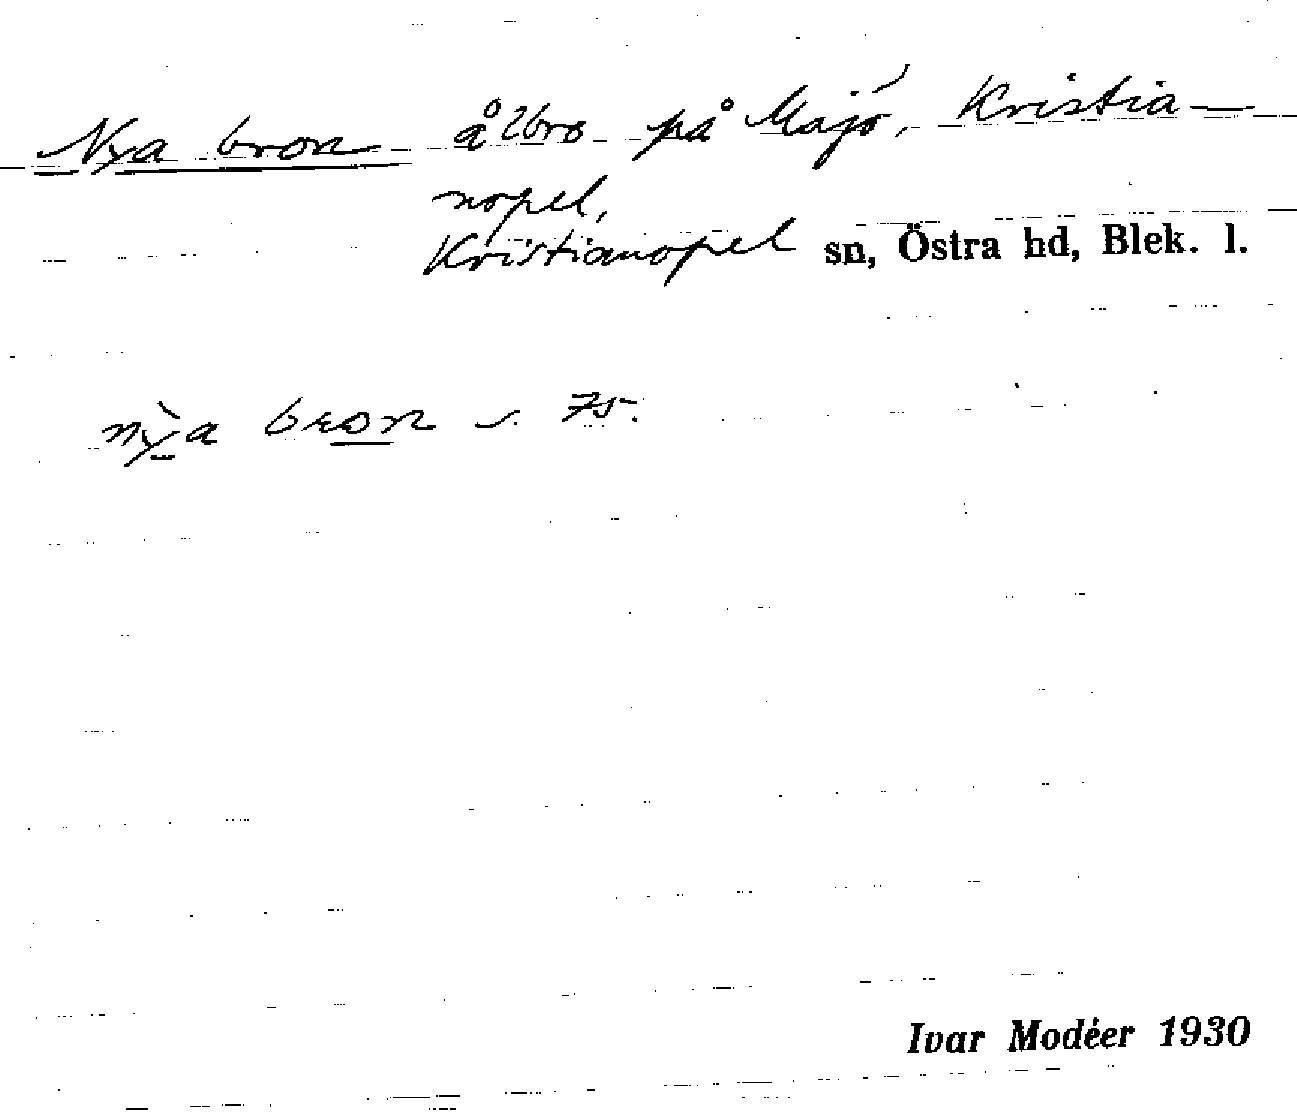 Nya bron ålbro på Majö, Kristia-
nopel,
Kristianopel sn, Östra hd, Blek. l.
nỳa bron s. 75.
Ivar Modéer 1930